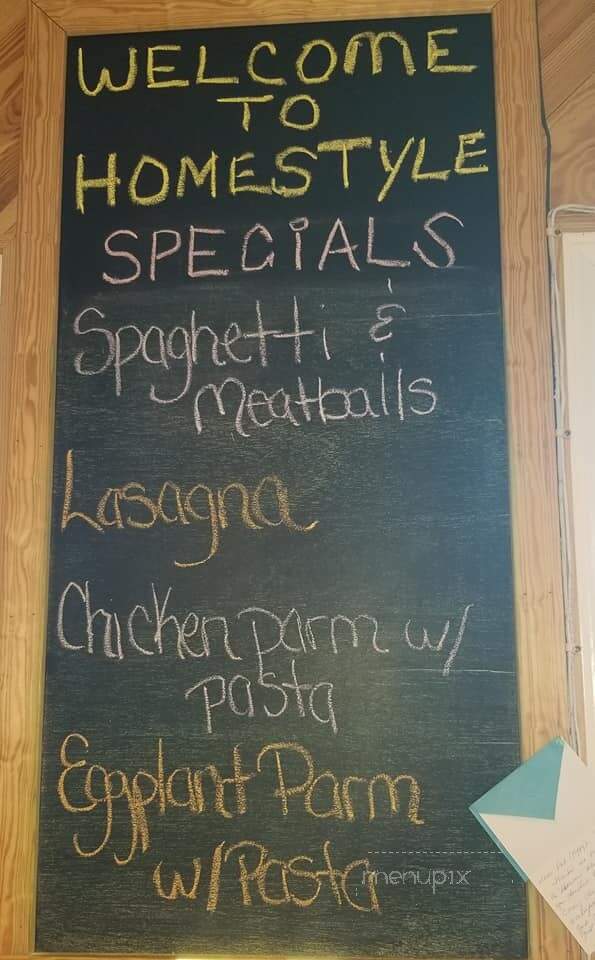 WELCOME
TO
HOMESTYLE
SPECIALS
Spaghetti &
Meatballs
Lasagna
Chicken parm w/
pasta
Eggplant Parm
w/Pasta
menupix